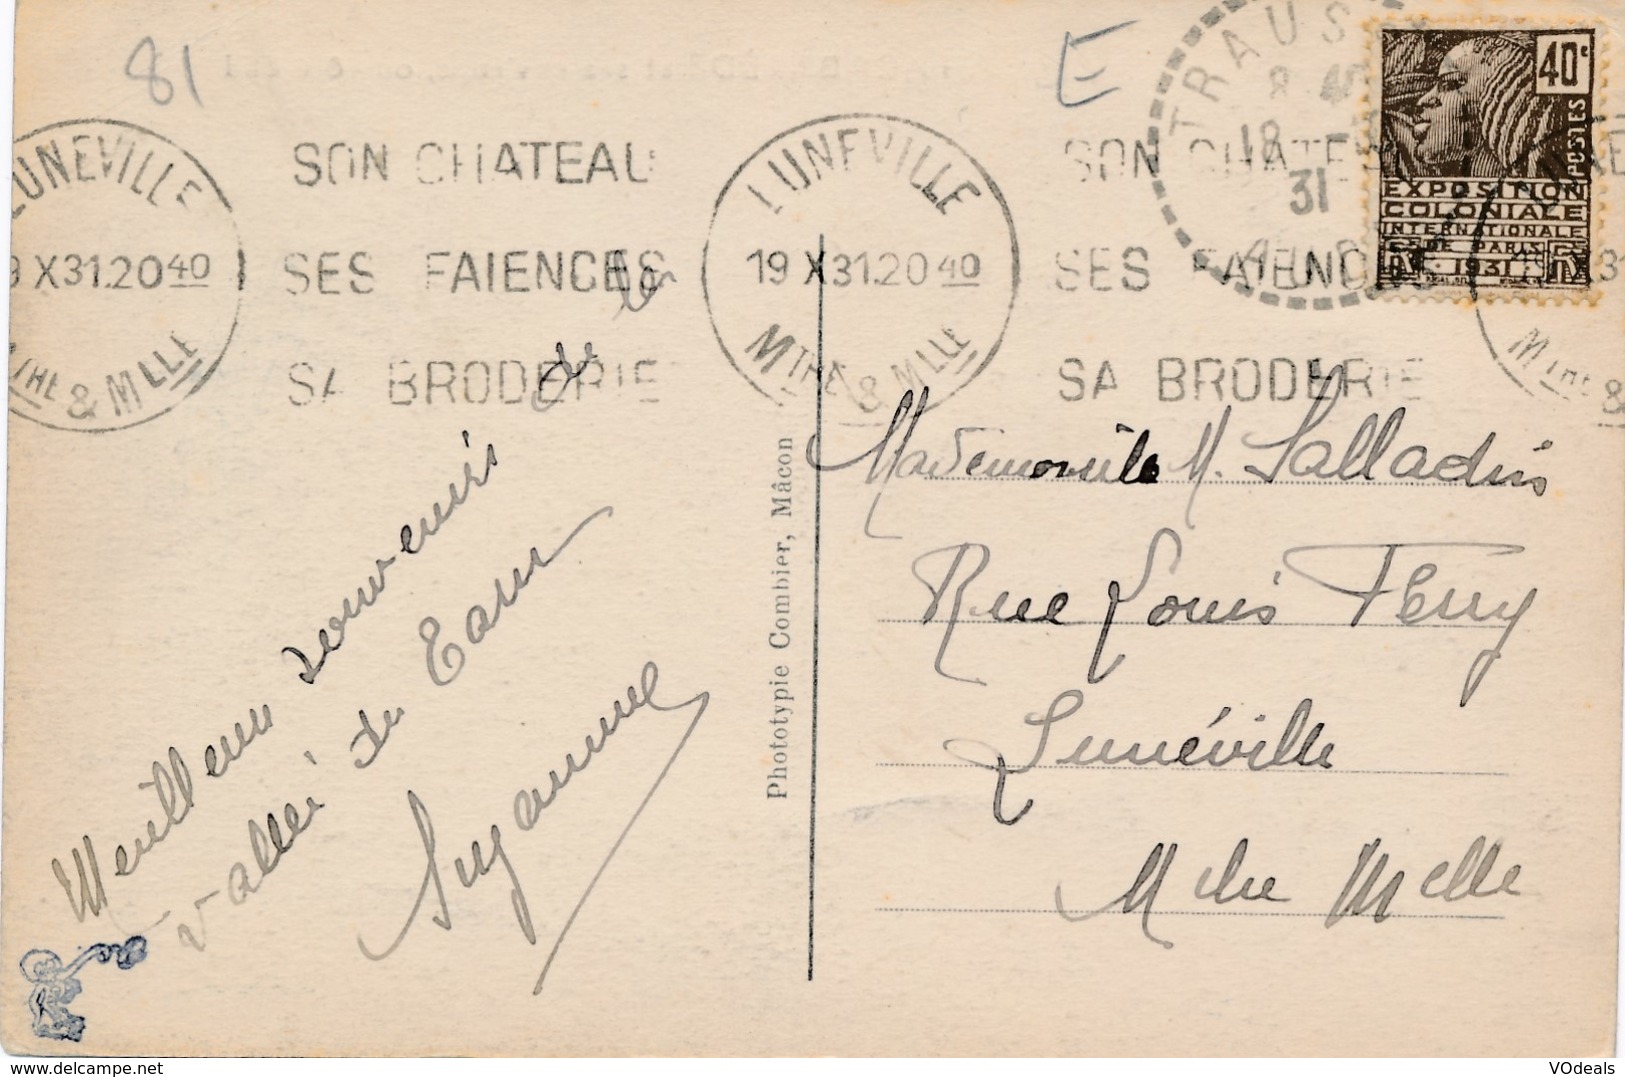 81
E
LUNEVILLE
19 X31.20 40
MTHE & MLLE
SON CHATEAU
SES FAIENCES
SA BRODERIE
LUNEVILLE
19 X31.20 40
MTHE & MLLE
SON CHATE
SES FAIENCES
SA BRODERIE
TRAUS
18
31
AUDE
40c
POSTES
EXPOSITION
COLONIALE
INTERNATIONALE
DE PARIS
1931
MTHE &
Meilleurs souvenirs de la
vallée du Tarn
Suzanne
Phototypie Combier, Mâcon
Mademoiselle M. Salladin
Rue Louis Ferry
Lunéville
M the Melle
VOdeals